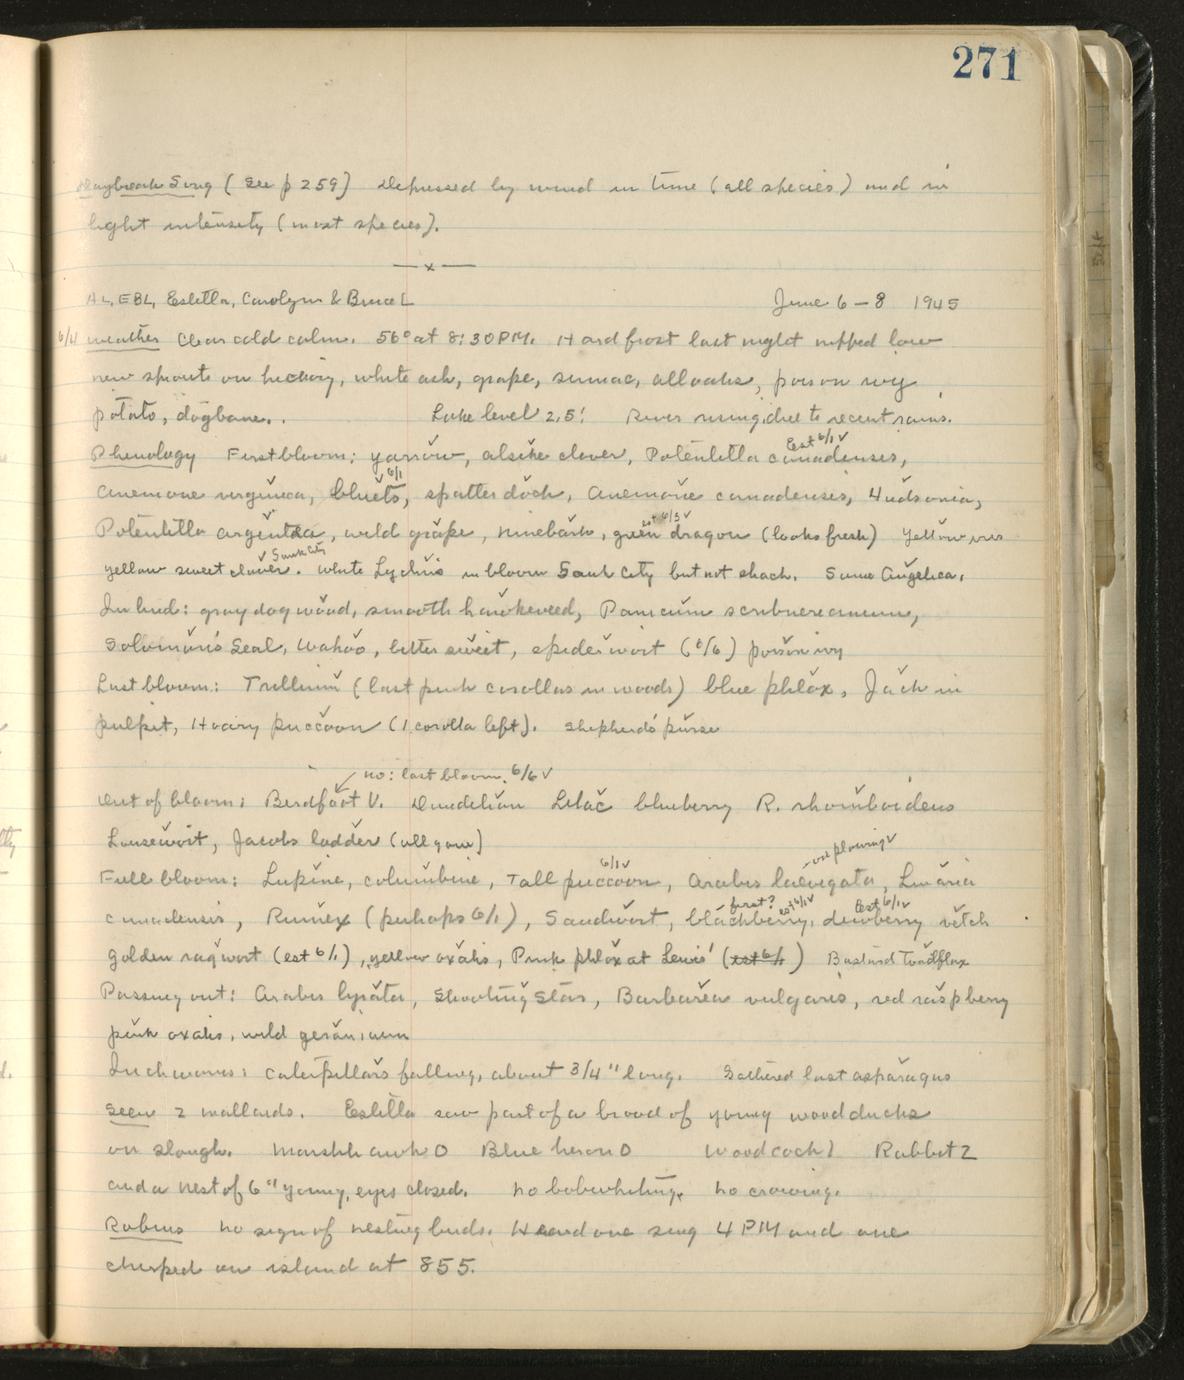 271
Daybreak Song (See p 259) Depressed by wind in time (all species) and in
light intensity (most species).
—x—
AL, EBL, Estella, Carolyn & Bruce L June 6-8 1945
6/6 Weather Clear cold calm. 56° at 8:30 PM. Hard frost last night nipped low
new shoots on hickory, white ash, grape, sumac, all oaks, poison ivy
potato, dogbane.. Lake level 2.5! River rising, due to recent rains.
Est 6/1 ✓
Phenology First bloom: yarrow, alsike clover, Potentilla canadensis,
6/1
Anemone virginica, bluets, spatter dock, Anemone canadensis, Hudsonia,
est 6/3 ✓
Potentilla argentea, wild grape, ninebark, green dragon (looks fresh) Yellow iris
✓ Sauk City
yellow sweet clover. White Lychnis in bloom Sauk City but not shack. Some Angelica.
In bud: gray dogwood, smooth hawkweed, Panicum scribnereanum,
Solomon's Seal, Wahoo, bitter sweet, spiderwort (6/6) poison ivy
Last bloom: Trillium (last pink corollas in woods) blue phlox, Jack in
pulpit, Hoary puccoon (1 corolla left). Shepherds purse
no: last bloom, 6/6 ✓
Out of bloom: Birdfoot V. Dandelion Lilac blueberry R. rhomboideus
Lousewort, Jacobs ladder (all gone)
6/1 ✓ on plowing ✓
Full bloom: Lupine, columbine, Tall puccoon, Arabis laevigata, Linaria
first? est 6/1 ✓ Est 6/1 ✓
canadensis, Rumex (perhaps 6/1), Sandwort, blackberry, dewberry vetch
golden ragwort (est 6/1), yellow oxalis, Pink phlox at Lewis' (est 6/1) Bastard Toadflax
Passing out: Arabis lyrata, Shooting Star, Barbarea vulgaris, red raspberry
pink oxalis, wild geranium
Inchworms: caterpillars falling, about 3/4" long. Gathered last asparagus
Seen 2 mallards. Estella saw part of a brood of young wood ducks
on slough. Marsh hawk 0 Blue heron 0 Woodcock 1 Rabbit 2
and a nest of 6 " young, eyes closed. No bobwhiting, no crowing.
Robins no sign of nesting birds. Heard one sing 4 PM and one
chirped on island at 855.